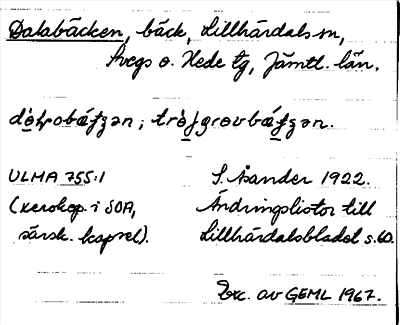 Dalabäcken, bäck, Lillhärdals sn,
Svegs o. Hede tg, Jämtl. län.
ULMA 755:1 S. Åsander 1922.
(xerokop. i SOA, Ändringslistor till
särsk. kapsel). Lillhärdalsbladet s. 60.
Exc. av GEML 1967.